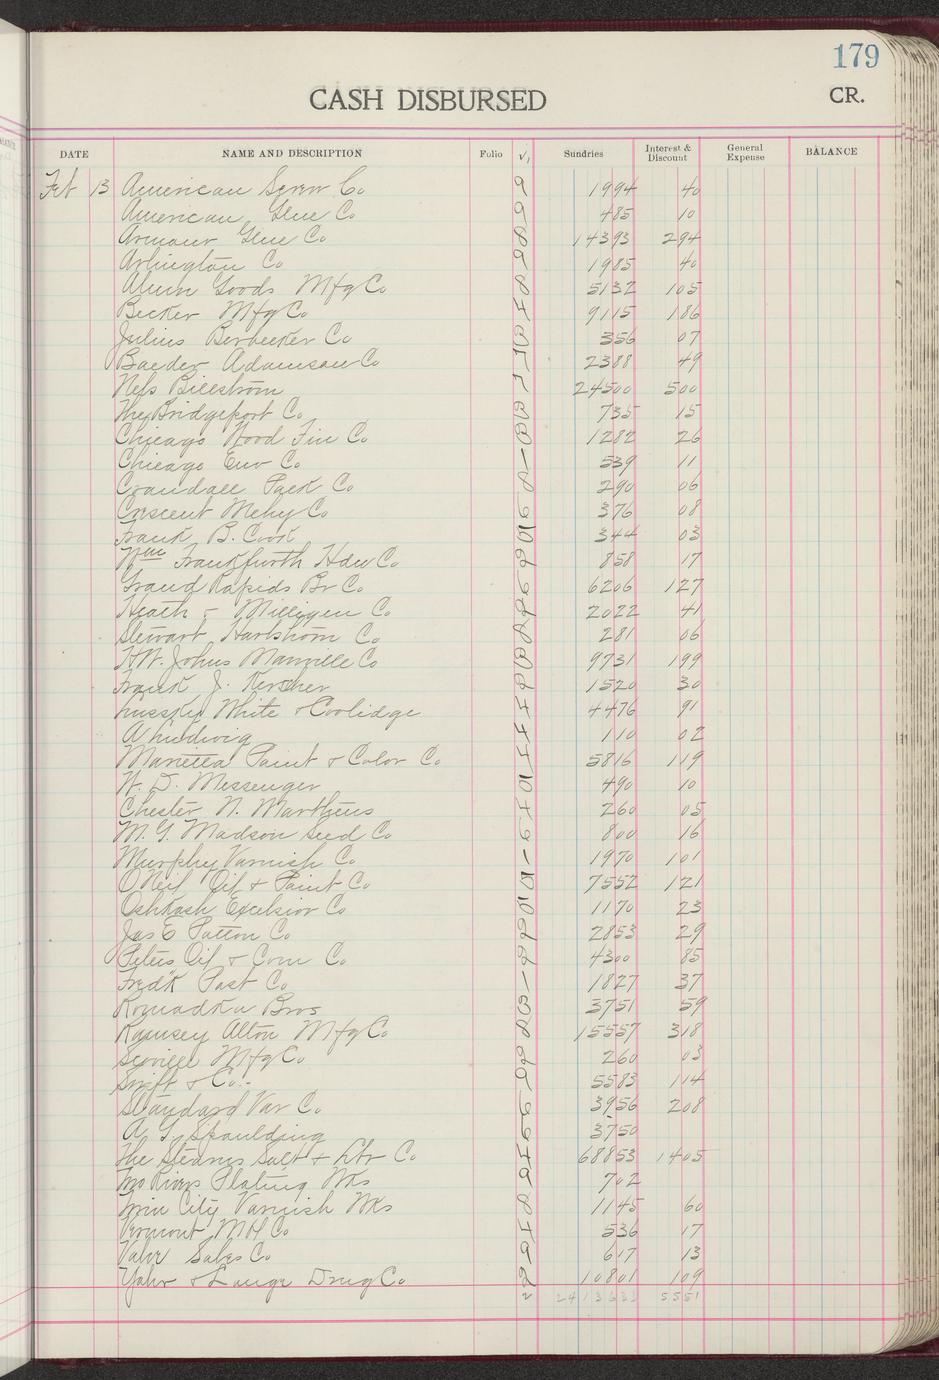 179
CASH DISBURSED
CR.
DATE NAME AND DESCRIPTION Folio √ Sundries Interest & Discount General Expense BALANCE
Feb 13 American Screw Co 1994 40
American Glue Co 485 10
Armour Glue Co 14393 294
Arlington Co 1985 40
Alum Goods Mfg Co 5132 105
Becker Mfg Co 9115 186
Julius Berbecker Co 356 07
Baeder Adamson Co 2388 49
Nels Billstrom 24500 500
The Bridgeport Co 735 15
Chicago Wood Fin Co 1282 26
Chicago Env Co 539 11
Crandall Pack Co 290 06
Crescent Mchy Co 376 08
Frank B. Cook 344 03
Wm Frankfurth Hdw Co 858 17
Grand Rapids Br Co 6206 127
Heath & Milligen Co 2022 41
Stewart Hartshorn Co 281 06
H.W. Johns Manville Co 9731 199
Frank J. Kerscher 1520 30
Lussky White & Coolidge 4476 91
A Ludwig 110 02
Marietta Paint & Color Co 5816 119
W. D. Messenger 490 10
Chester N. Marthens 260 05
M. G. Madson Seed Co 800 16
Murphy Varnish Co 1970 101
O'Neil Oil & Paint Co 7552 121
Oshkosh Excelsior Co 1170 23
Jas E Patton Co 2853 29
Peters Oil & Com Co 4300 85
Fredk Post Co 1827 37
Romadka Bros 3751 59
Ramsey Alton Mfg Co 15557 318
Scoville Mfg Co 260 03
Swift & Co.- 5583 114
Standard Var Co 3956 208
A. G. Spaulding 3750
The Stearns Salt & Lbr Co 68853 1405
Two Rivers Plating Wks 702
Twin City Varnish Wks 1145 60
Vermont M H Co 536 17
Valve Sales Co 617 13
Yahr & Lange Drug Co 10801 109
5551